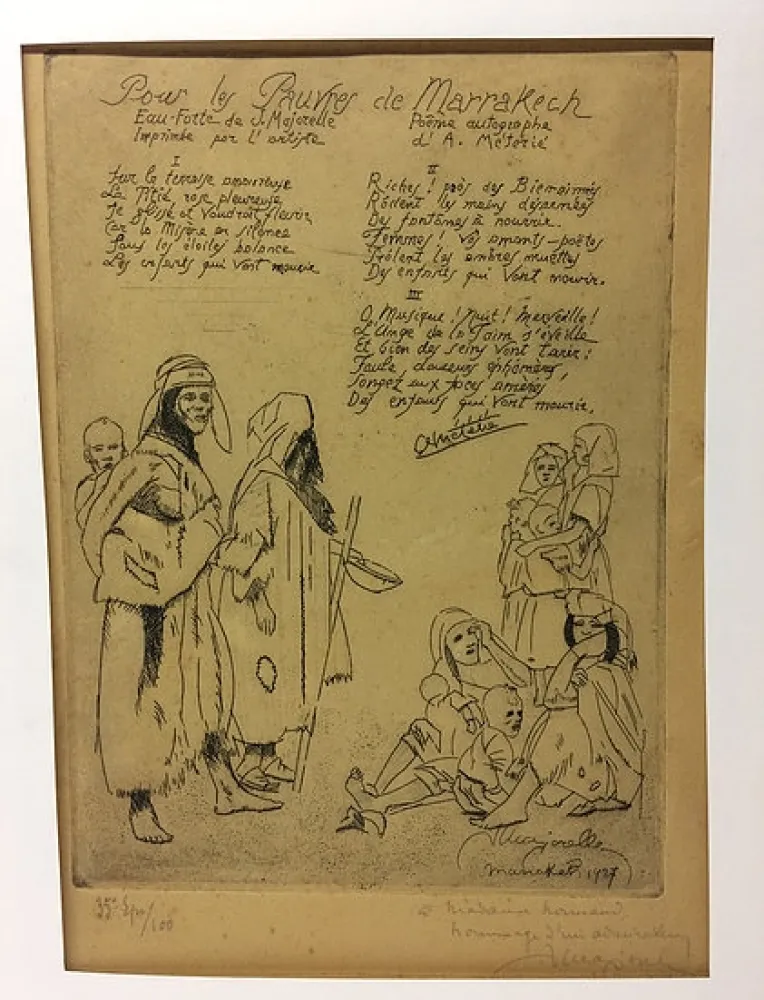 Pour les Pauvres de Marrakech
Eau-Forte de J. Majorelle
Imprimée par l'artiste
Poème autographe
d'A. Métérié
I
Sur la terrasse amoureuse
La Pitié, rose pleureuse
Se glisse et voudrait fleurir
Car la Misère en silence
Sous les étoiles balance
Les enfants qui vont mourir
II
Riches ! près des Bienaimés
Rôdent les mains désarmées
Des fantômes à nourrir.
Femmes ! Vos amants-poètes
Frôlent les ombres muettes
Des enfants qui vont mourir.
III
O, Musique ! Nuit ! Merveille !
L'Ange de la Faim s'éveille
Et bien des seins vont tarir ;
Foule, douceurs éphémères,
Songez aux faces amères
Des enfants qui vont mourir.
AMétérié
J Majorelle
Marrakech, 1927
33e Epr/100
à Madame
hommage d'un admirateur
J Majorelle